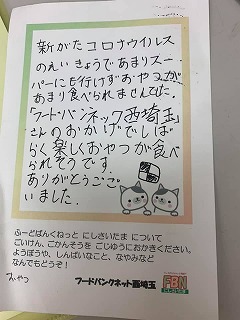 新がたコロナウイルス
のえいきょうであまりスー
パーにも行けずおやつが
あまり食べられませんでした。
「フードバンネック西埼玉」
さんのおかげでしば
らく楽しくおやつが食べ
られそうです
ありがとうござ
いました。
ふーどばんくねっと にしさいたま について
ごいけん、ごかんそうを ごじゆうにおかきください。
ようぼうや、しんぱいなこと、なやみなど
なんでもどうぞ！
フードバンクネット西埼玉
FBN